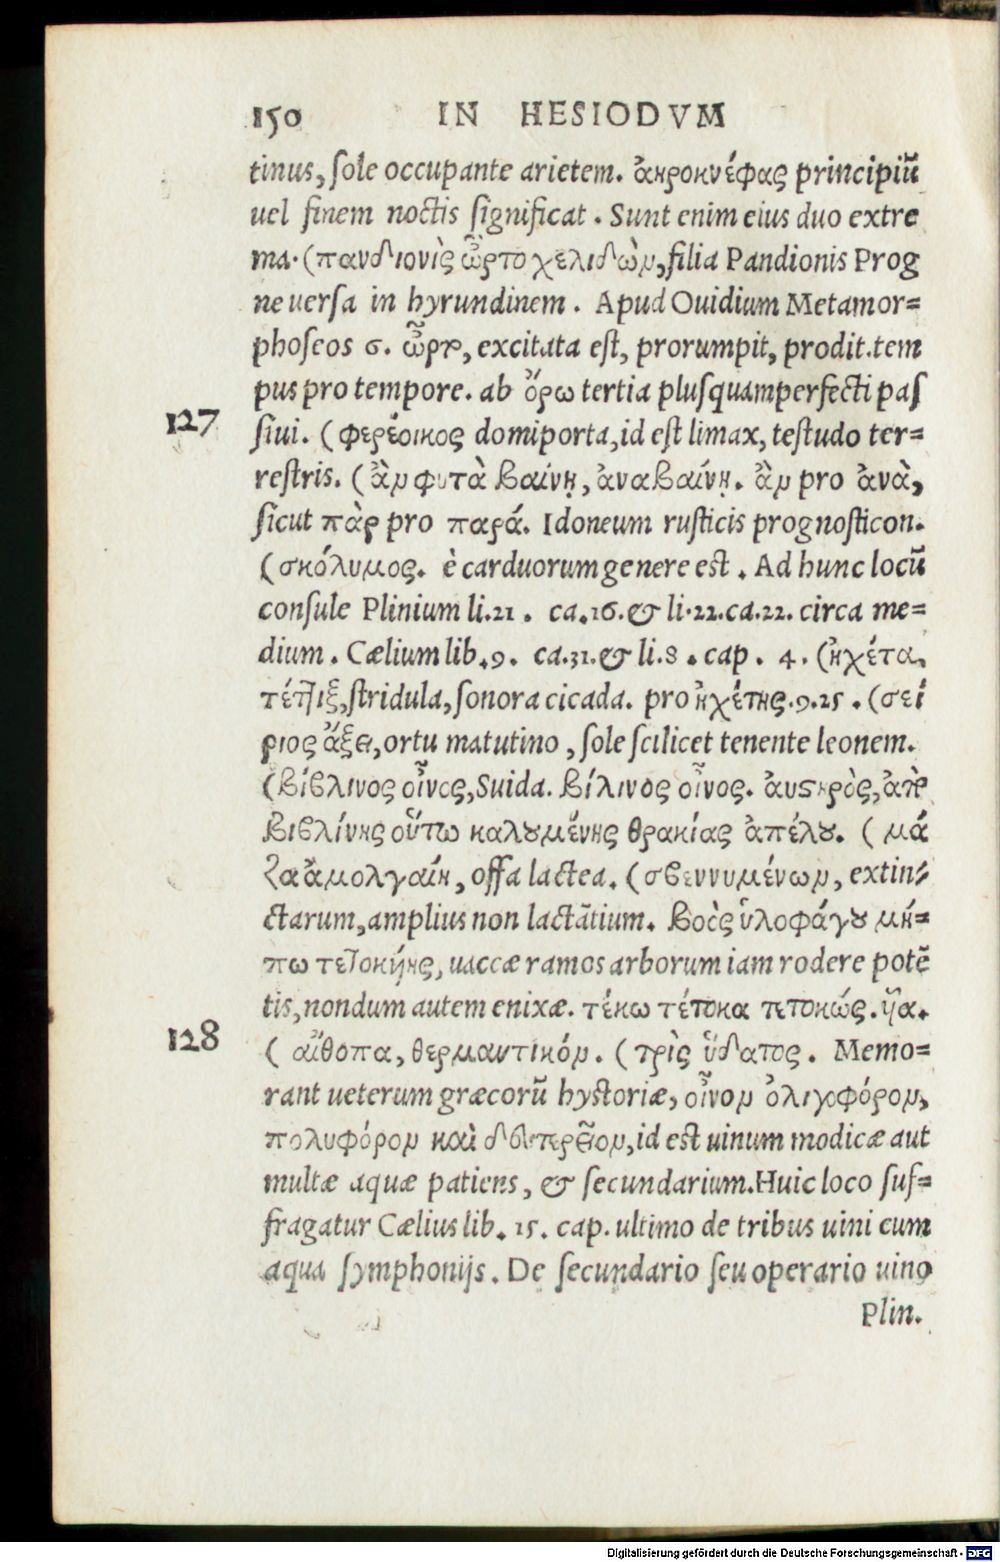 150 IN HESIODVM
tinus, ſole occupante arietem. ἀκροκνέφας principiũ
uel finem noctis ſignificat. Sunt enim eius duo extre
ma. (πανδιονὶς ὦρτο χελιδὼν, filia Pandionis Prog
ne uerſa in hyrundinem. Apud Ouidium Metamor=
phoſeos σ. ὦρτο, excitata eſt, prorumpit, prodit. tem
pus pro tempore. ab ὄρω tertia pluſquamperfecti paſ
127 ſiui. (φερέοικος domiporta, id eſt limax, teſtudo ter=
reſtris. (ἂμ φυτὰ βαίνῃ, ἀναβαίνῃ. ἂμ pro ἀνὰ,
ſicut πὰρ pro παρά. Idoneum ruſticis prognoſticon.
(σκόλυμος. è carduorum genere est. Ad hunc locũ
conſule Plinium li.21. ca.16. & li.22.ca.22. circa me=
dium. Cælium lib.9. ca.31. & li.8. cap. 4. (ἠχέτα,
τέττιξ, ſtridula, ſonora cicada. pro ἠχέτης.9.25. (σεί
ριος ἄξει, ortu matutino, ſole ſcilicet tenente leonem.
(βίβλινος οἶνος, Suida. βίλινος οἶνος. ἀυστηρὸς, ἀπὸ
βιβλίνης οὕτω καλουμένης θρακίας ἀπέλου. (μά
ζα ἀμολγαίη, offa lactea. (σβεννυμένων, extin=
ctarum, amplius non lactãtium. βοὸς ὑλοφάγου μή=
πω τετοκύης, uaccæ ramos arborum iam rodere potẽ
tis, nondum autem enixæ. τέκω τέτοκα τετοκώς. ῦα.
128 (αἴθοπα, θερμαντικόν. (τρὶς ὕδατος. Memo=
rant ueterum græcorũ hyſtoriæ, οἶνον ὀλιγοφόρον,
πολυφόρον καὶ δευτερεῖον, id eſt uinum modicæ aut
multæ aquæ patiens, & ſecundarium. Huic loco ſuf=
fragatur Cælius lib. 15. cap. ultimo de tribus uini cum
aqua ſymphonijs. De ſecundario ſeu operario uino
Plin.
Digitalisierung gefördert durch die Deutsche Forschungsgemeinschaft - DFG